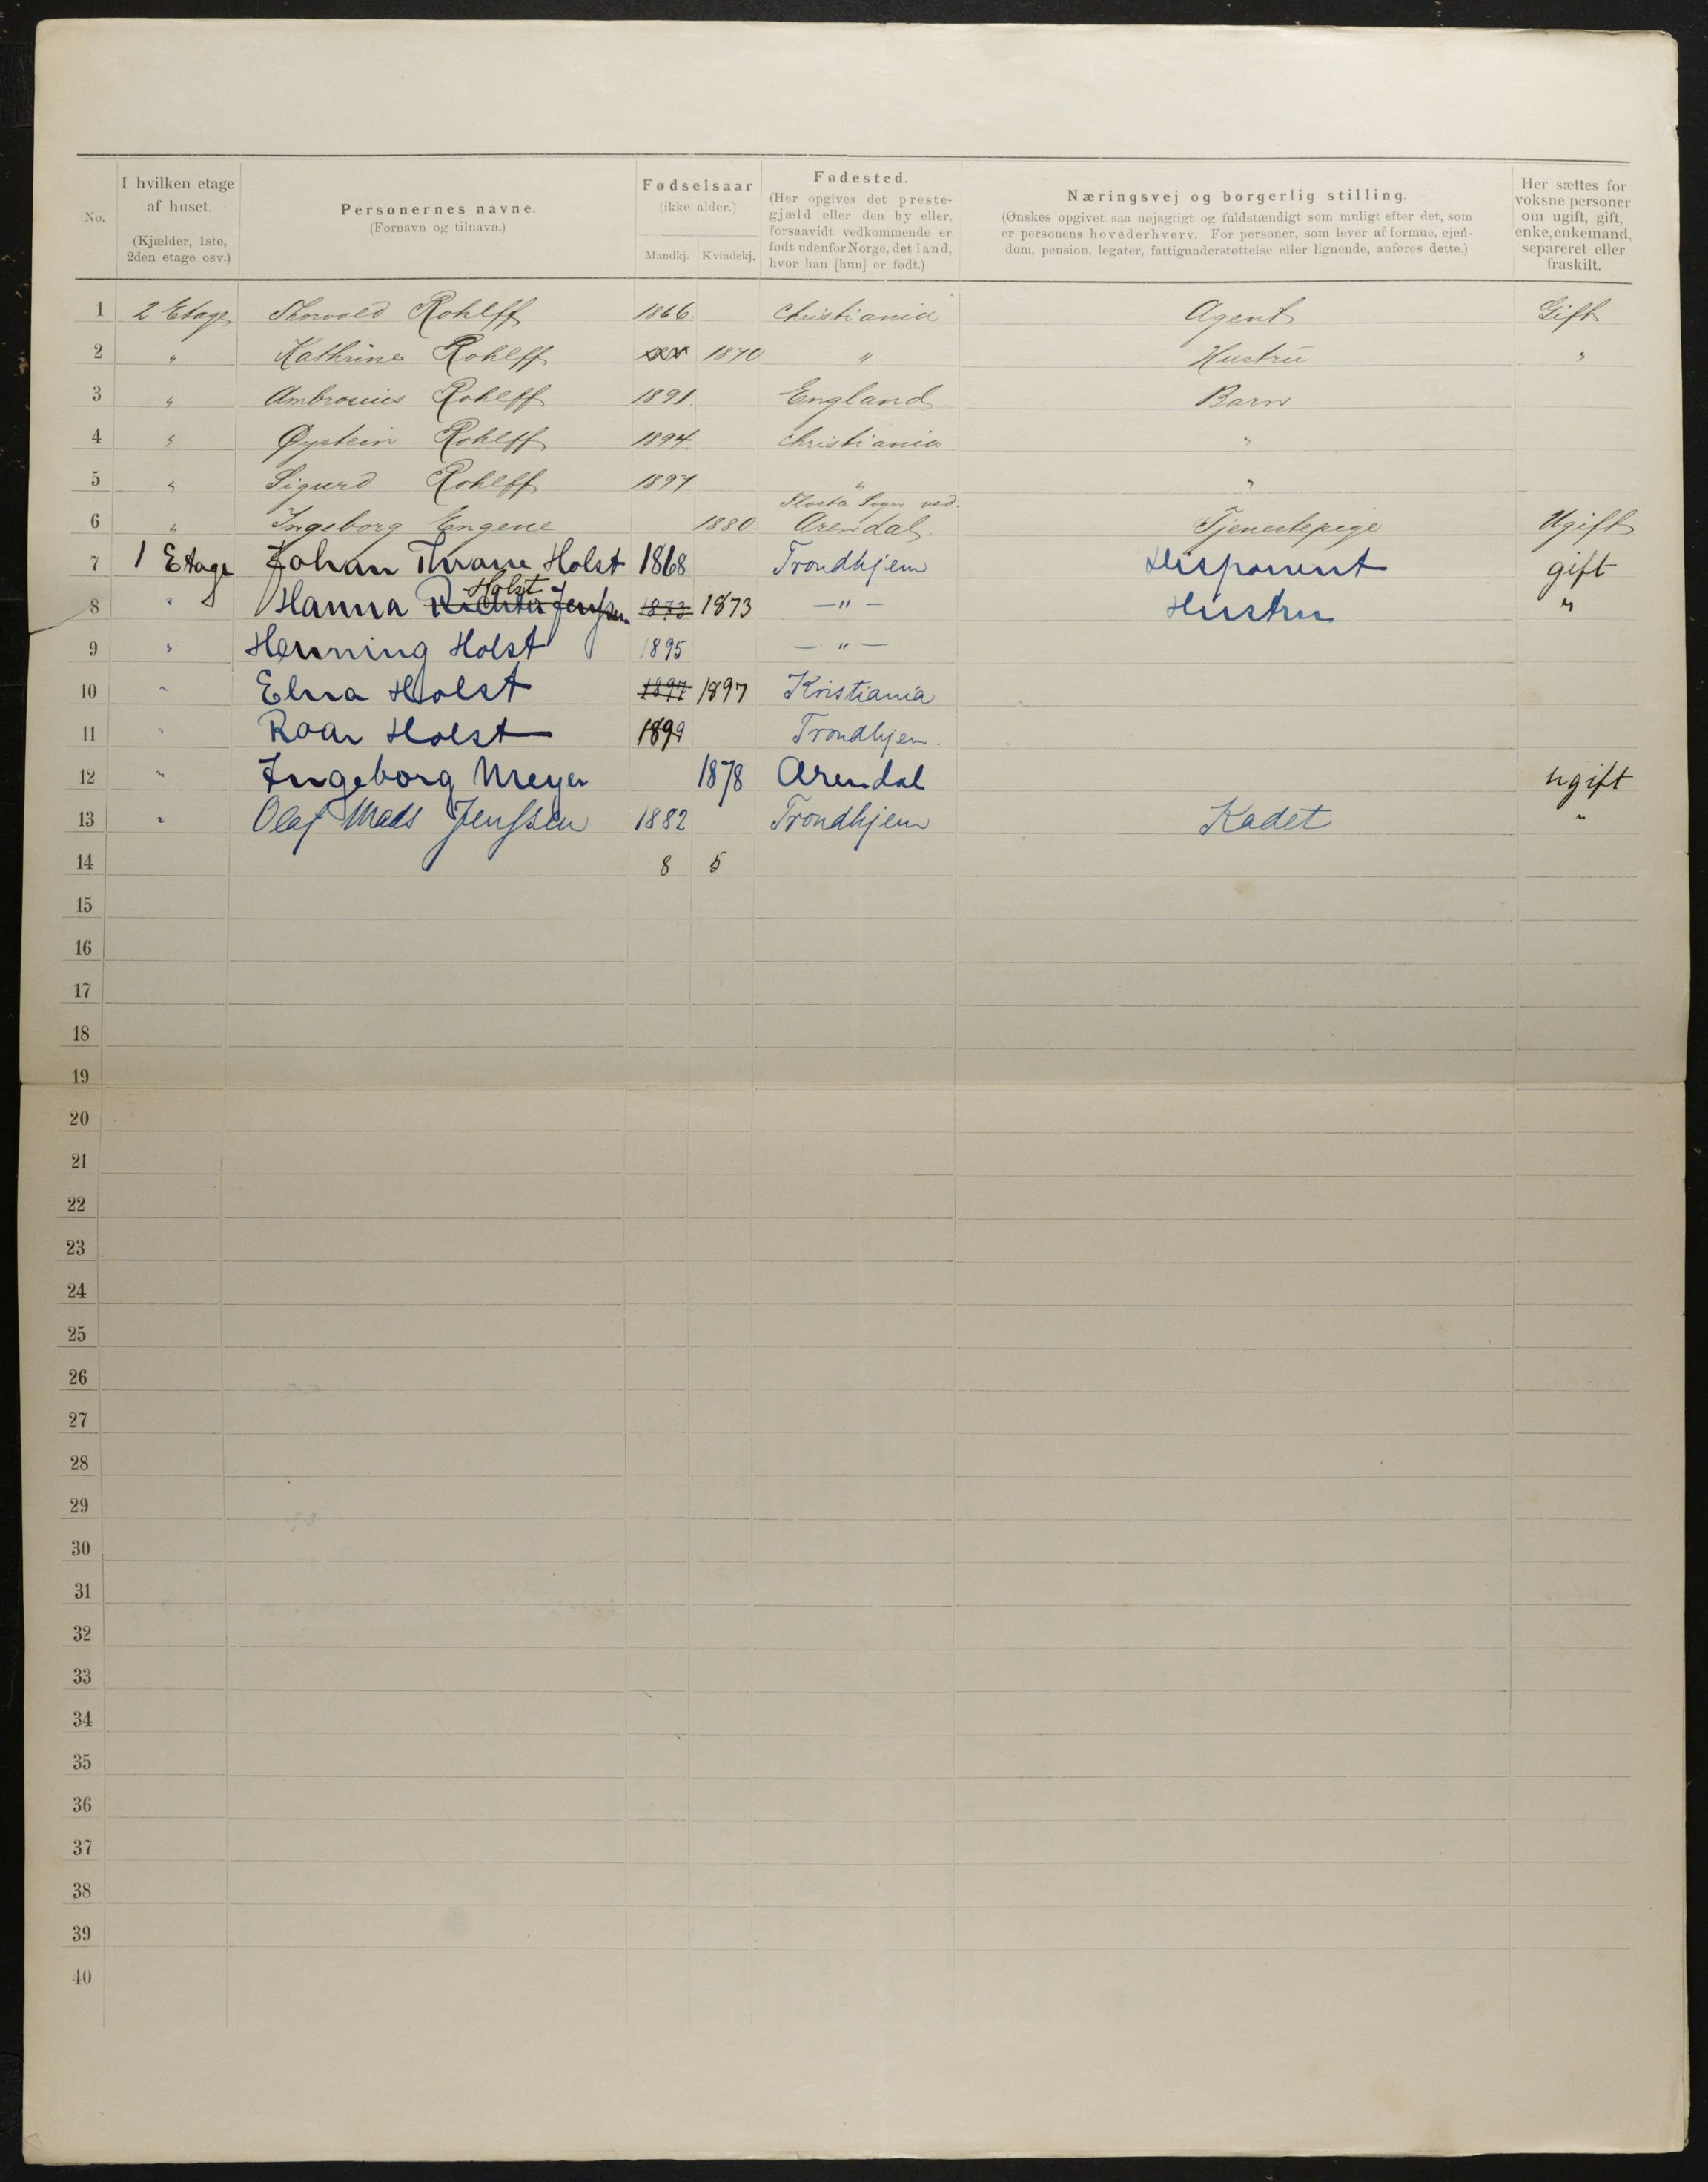 No. I hvilken etage af huset. (Kjælder, 1ste, 2den etage osv.) Personernes navne. (Fornavn og tilnavn.) Fødselsaar (ikke alder.) Mandkj. Kvindekj. Fødested. (Her opgives det prestegjæld eller den by eller, forsaavidt vedkommende er født udenfor Norge, det land, hvor han [hun] er født.) Næringsvej og borgerlig stilling. (Ønskes opgivet saa nøjagtigt og fuldstændigt som muligt efter det, som er personens hovederhverv. For personer, som lever af formue, ejendom, pension, legater, fattigunderstøttelse eller lignende, anføres dette.) Her sættes for voksne personer om ugift, gift, enke, enkemand, separeret eller fraskilt.
1 2 Etage Thorvald Rohlff 1866. Christiania Agent Gift
2 " Kathrine Rohlff 1870 " Hustru "
3 " Ambrosius Rohlff 1891. England Barn
4 " Øystein Rohlff 1894. Christiania "
5 " Sigurd Rohlff 1897 " "
Flosta Sogn ved.
6 " Ingeborg Engene 1880. Arendal. Tjenestepige Ugift
7 1 Etage Johan Thrane Holst 1868 Trondhjem Disponent gift
Holst
8 " Hanna Richter Jenssen 1873 1873 — " — Hustru "
9 " Henning Holst 1895 — " —
10 " Elna Holst 1897 1897 Kristiania
11 " Roar Holst 1899 Trondhjem.
12 " Ingeborg Meyer 1878 Arendal ugift
13 " Olaf Mads Jenssen 1882 Trondhjem Kadet "
14 8 5
15
16
17
18
19
20
21
22
23
24
25
26
27
28
29
30
31
32
33
34
35
36
37
38
39
40